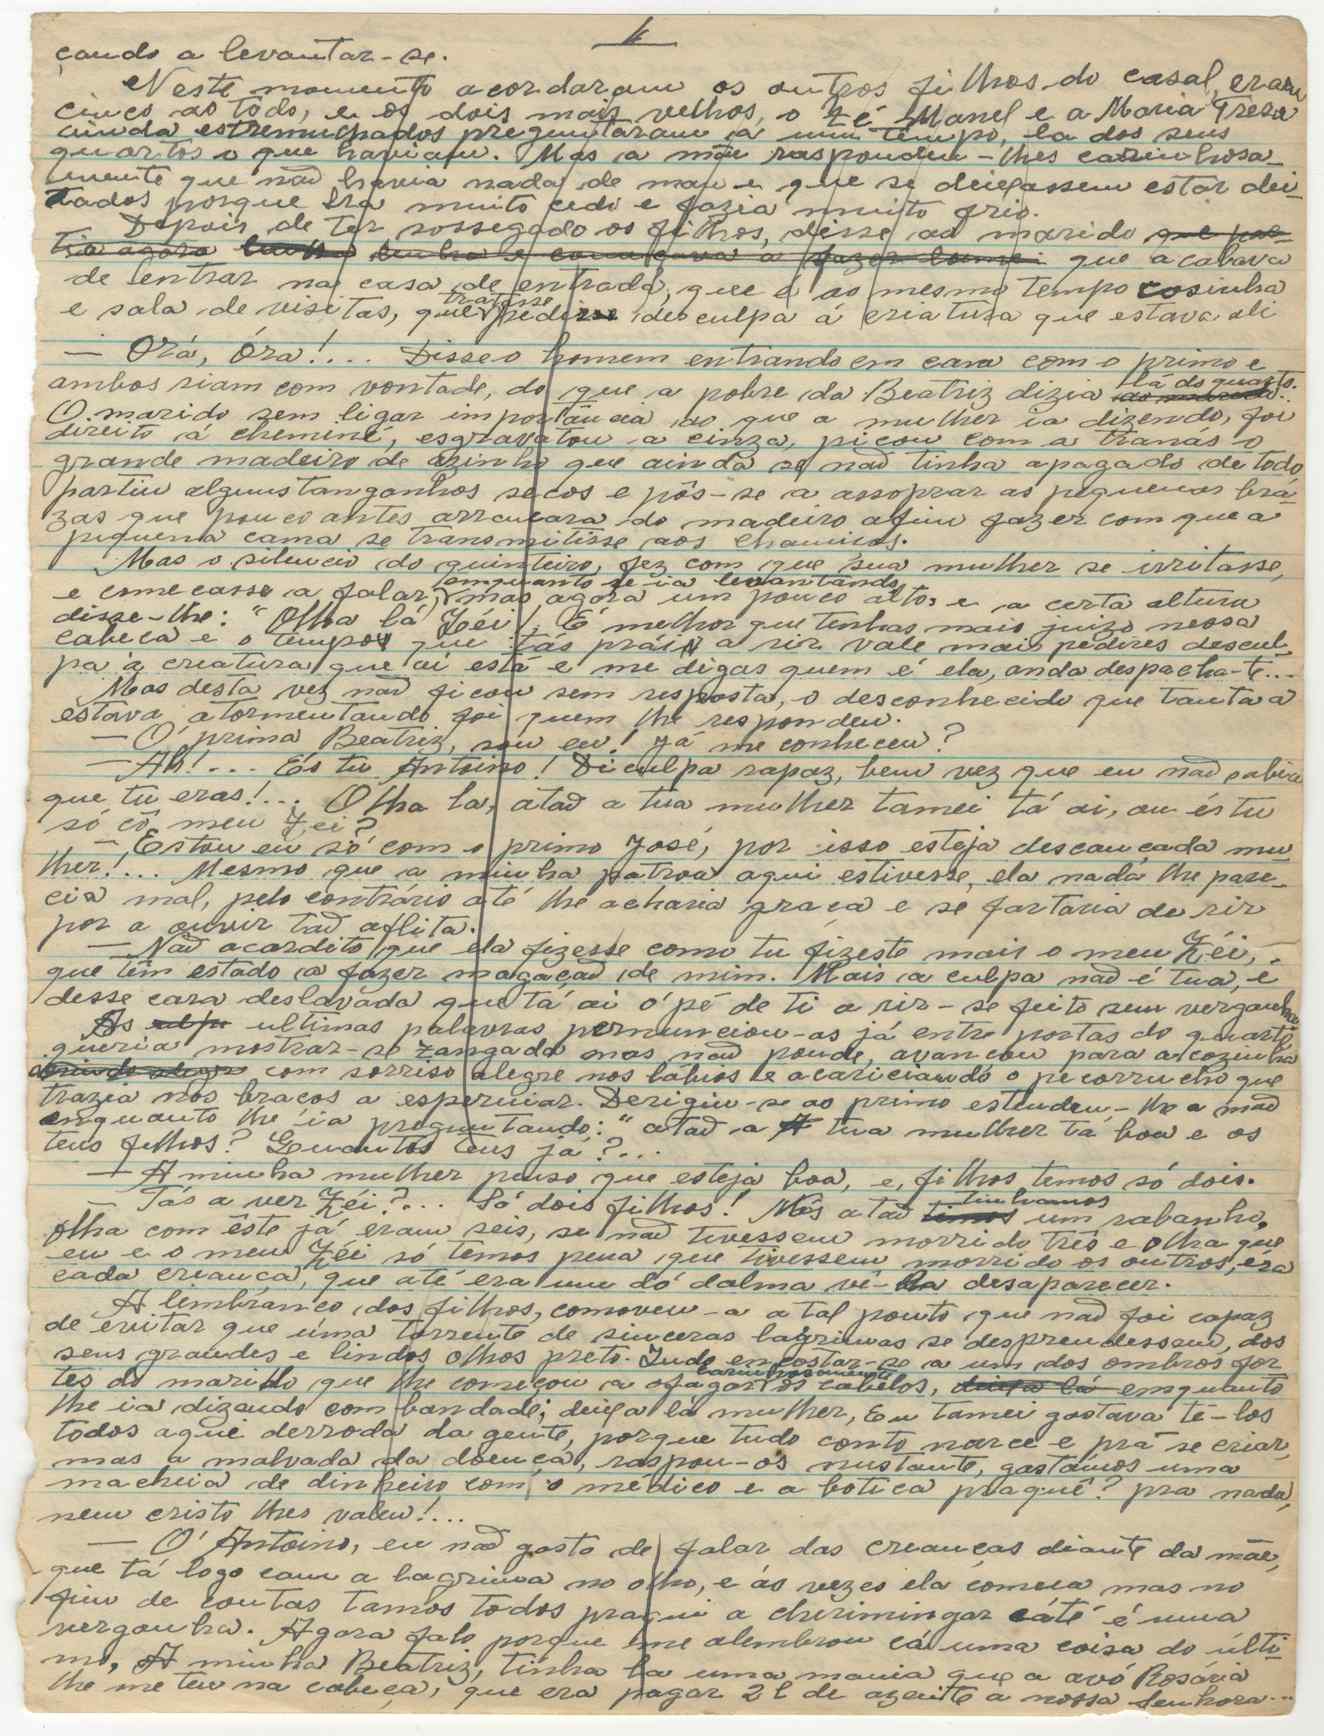 4
çando a levantar-se.
Neste momento acordaram os outros filhos do casal, eram
cinco ao todo, e os dois mais velhos, o Zé Manel e a Maria Treza
ainda estremunhados preguntaram a um tempo, la dos seus
quartos o que haviam. Mas a mãe raspondeu-lhes carinhosa-
mente que não havia nada de mau e que se deixassem estar dei-
tados porque era muito cedo e fazia muito frio.
Depois de ter sossegado os filhos, disse ao marido
que acabava
de entrar na casa de entrada, que é ao mesmo tempo cosinha
e sala de visitas, que tratasse pedir desculpa á creatura que estava ali
— Óra, Óra!... Disse o homem entrando em casa com o primo e
ambos riam com vontade, do que a pobre da Beatriz dizia lá do quarto.
O marido sem ligar importância ao que a mulher ia dizendo, foi
direito á cheminé, esgravatou a cinza, picou com a tranás o
grande madeiro de azinho que ainda se não tinha apagado de todo
partiu alguns tanganhos secos e pôs-se a assoprar as pequenas brá-
zas que pouco antes arrancara do madeiro afim fazer com que a
piquena cama se transmitisse aos chamiços.
Mas o silencio do quinteiro, fez com que sua mulher se irritasse,
e comecasse a falar, emquanto se ia levantando, mas agora um pouco alto, e a certa altura
disse-lhe: "Olha lá Zéi! É melhor que tenhas mais juizo nessa
cabeça e o tempo que tás práiN a rir vale mais pedires descul-
pa á creatura que ai está e me digas quem é ela, anda despacha-te...
Mas desta vez não ficou sem resposta, o desconhecido que tanto a
estava atormentando foi quem lhe respondeu.
— Ó prima Beatriz, sou eu! Já me conheceu?
— Ah!... És tu Antoino! Diculpa rapaz, bem vez que eu não sabia
que tu eras!... Olha la, atão a tua mulher tamei tá ai, ou és tu
só cõ meu Zéi?
— Estou eu só com o primo José, por isso esteja descançada mu-
lher!... Mesmo que a minha patroa aqui estivesse, ela nada lhe pare-
cia mal, pelo contrário até lhe acharia graca e se fartaria de rir
por a ouvir tão aflita.
— Não acardito que ela fizesse como tu fizeste mais o meu Zéi,
que têm estado a fazer magação de mim. Mais a culpa não é tua, é
desse cara deslavada que tá ai ó pé de ti a rir-se feito sem vergonha
As ultimas palavras pernunciou-as já entre portas do quarto
queria mostrar-se zangada mas não poude, avancou para a cozinha
com sorriso alegre nos lábios e acariciando o pecorrucho que
trazia nos braços a espernear. Derigiu-se ao primo estendeu-lhe a mão
enquanto lhe ia preguntando: "atão a tua mulher tá boa e os
teus filhos? Quantos teus já?...
— A minha mulher penso que esteja boa, e, filhos temos só dois.
— Tás a ver Zéi?... Só dois filhos! Nós atão tinhamos um rabanho,
olha com êste já eram seis, se não tivessem morrido três e olha que
eu e o meu Zéi só temos pena que tivessem morrido os outros, éra
cada criança, que até era um dó dalma vê-la desaparecer.
A lembranço dos filhos, comoveu-a a tal ponto que não foi capaz
de evitar que uma torrente de sinceras lagrimas se desprendessem, dos
seus grandes e lindos olhos preto. Indo encostar-se a um dos ombros for
tes do marido que lhe começou a afagar carinhosamente os cabelos, emquanto
lhe ia dizendo com bandade; deixa lá mulher, Eu tamei gostava tê-los
todos aqui derroda da gente, porque tudo conto narce e prá se criar,
mas a malvada da doença, raspou-os nustante, gastámos uma
macheia de dinheiro com o médico e a botica praquê? pra nada,
nem cristo lhes valeu!...
— Ó Antoino, eu não gosto de falar das creanças diante da mãe,
que tá logo cam a lagrima no olho, e ás vezes ela comeca mas no
fim de contas tamos todos praqui a cherimingar cáté é uma
vergonha. Agora falo porque me alembrou cá uma coisa do últi-
mo, A minha Beatriz, tinha la uma mania que a avó Rosária
lhe meteu na cabeça, que era pagar 2 l de azeite a nossa senhora...